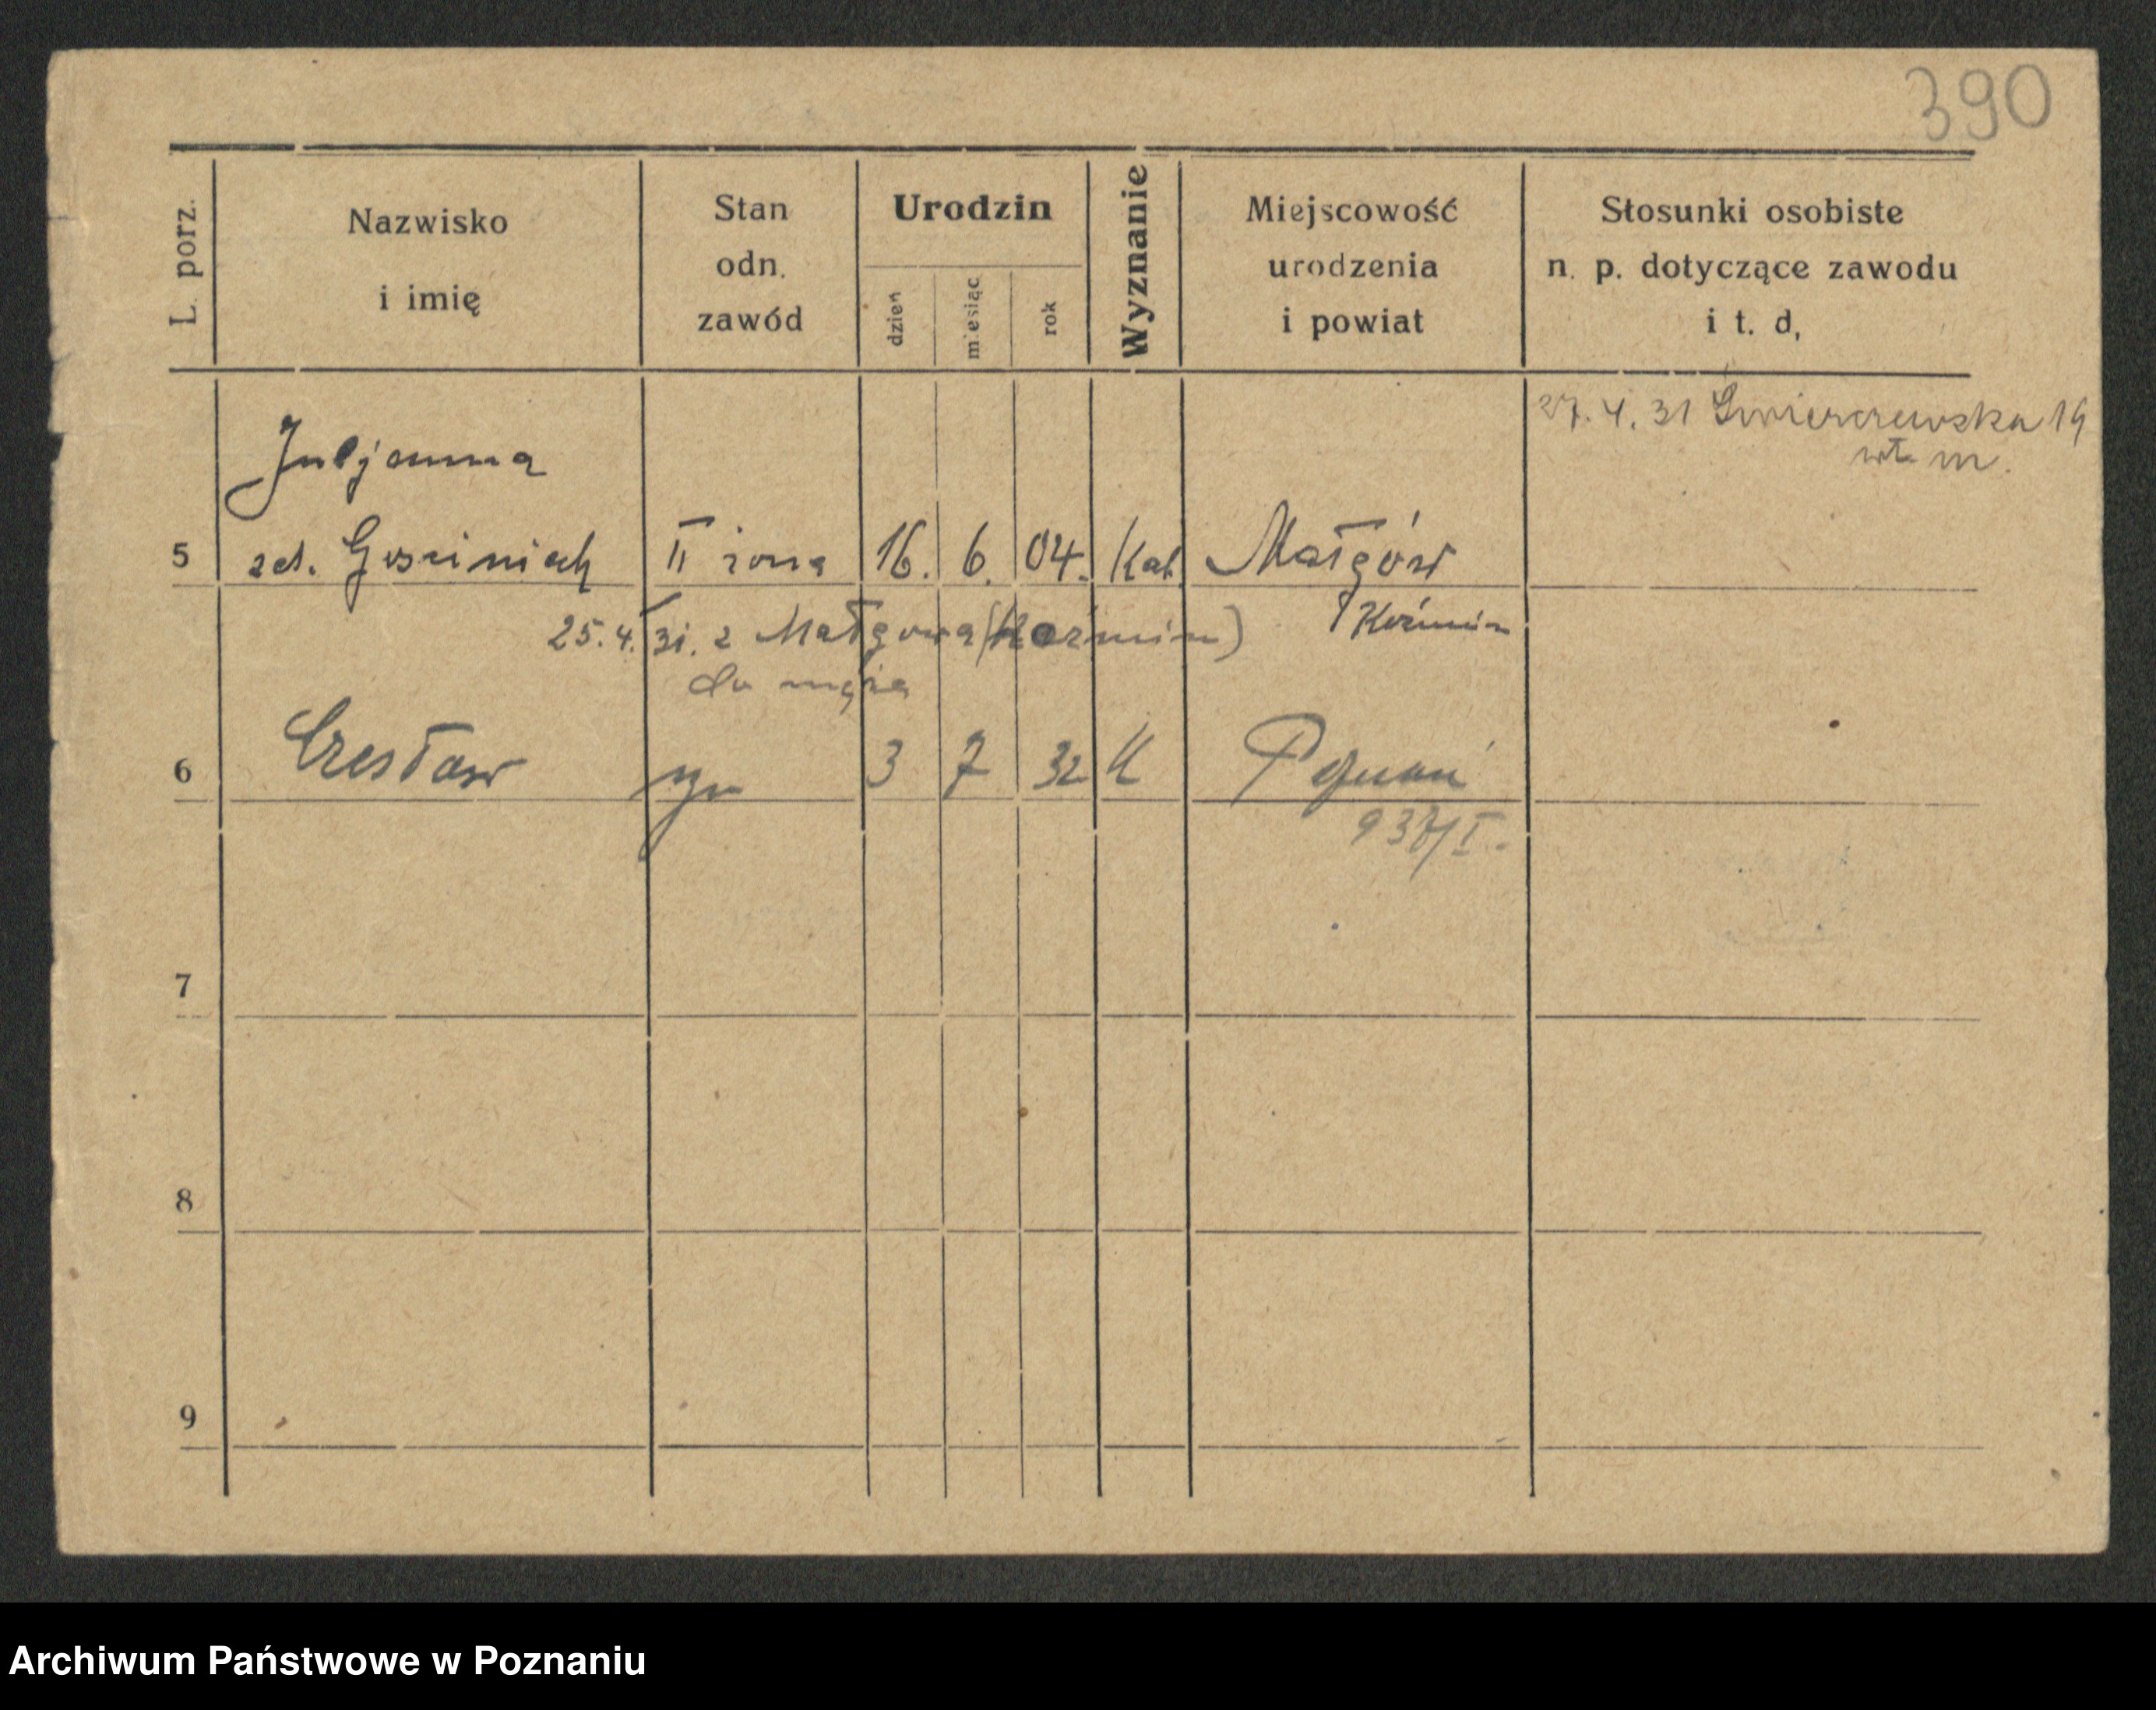 390
L. porz.
Nazwisko
i imię
Stan
odn.
zawód
Urodzin
dzień
miesiąc
rok
Wyznanie
Miejscowość
urodzenia
i powiat
Stosunki osobiste
n. p. dotyczące zawodu
i t. d,
27. 4. 31 Świerczewska 19
wł. m.
Juljanna
5 zd. II żona 16. 6. 04. Kat. Małgów
Koźmin
25.4.31. z Małgowa (Koźmin)
do męża
6 Czesław syn 3 7 32 K Poznań
937/I.
7
8
9
Archiwum Państwowe w Poznaniu